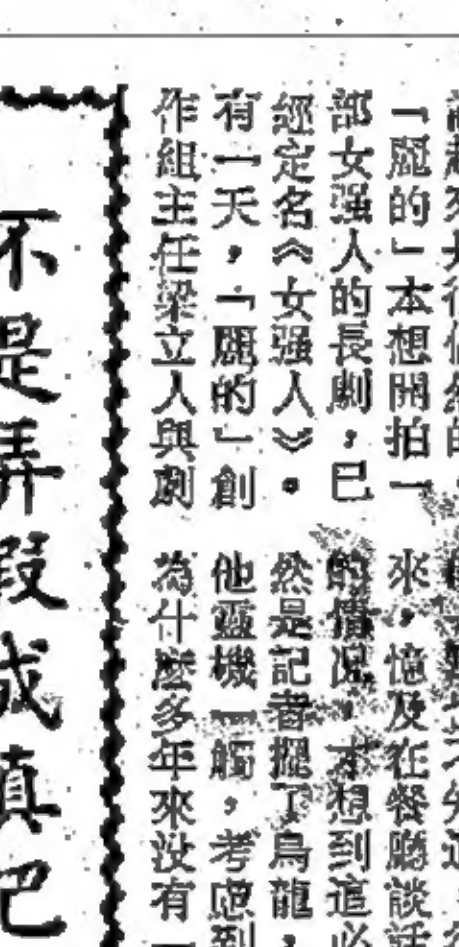 「麗的」本想開拍一
部女强人的長劇，已
經定名《女强人》。
有一天，「麗的」創
作組主任梁立人與劇
來，憶及在餐廳談話
的情況，才想到這必
然是記者擺了烏龍，
他靈機一觸，考慮到
為什麼多年來没有一
不是弄假成真